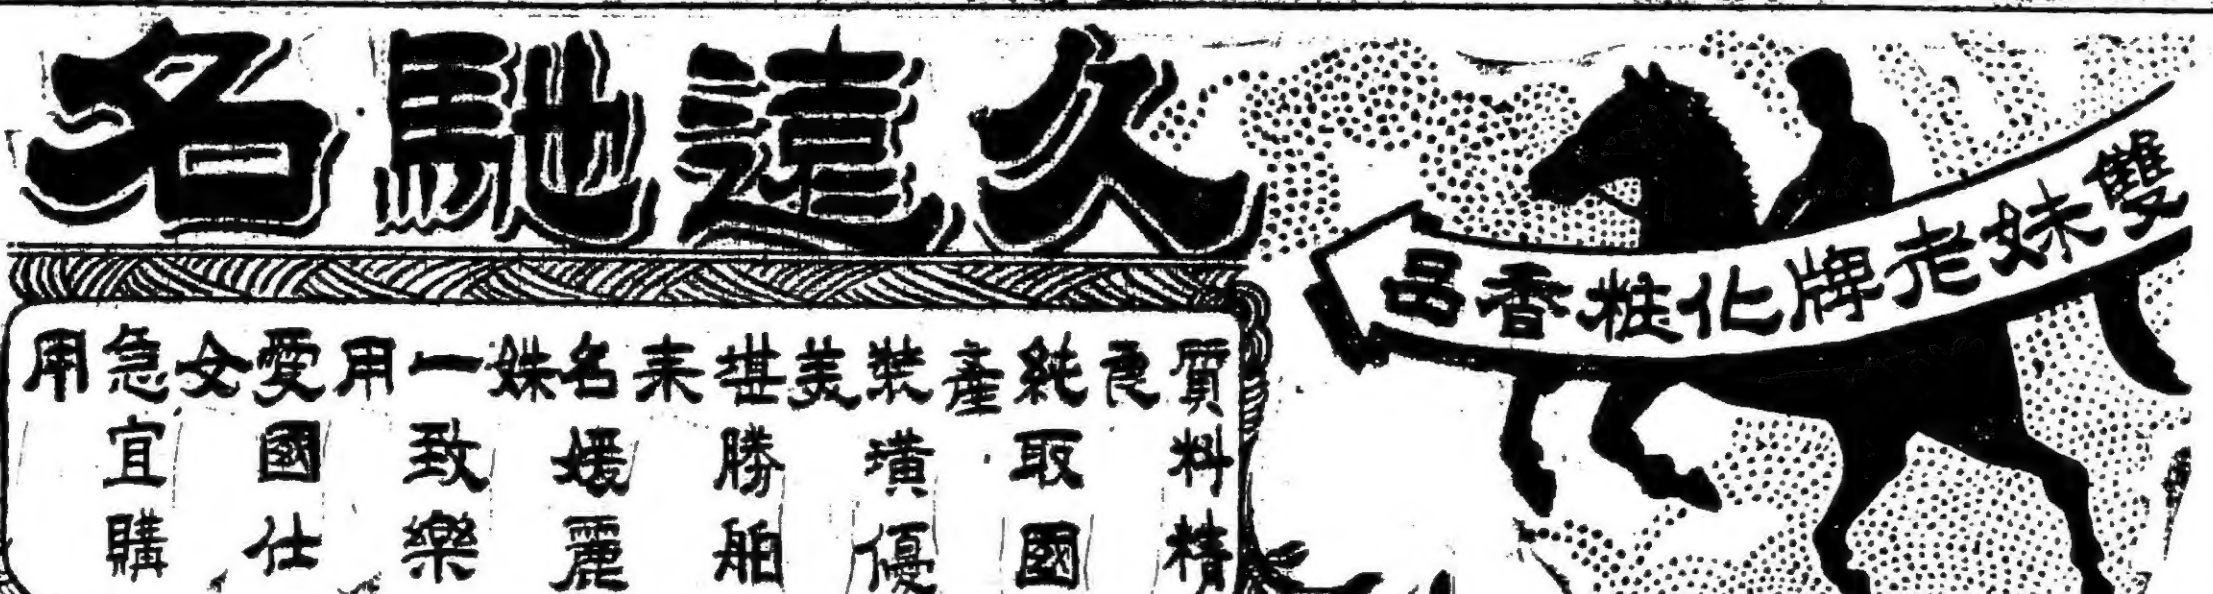 雙妹老牌化粧香品
久遠馳名
質料精良
純取國產
裝璜優美
堪勝舶来
名媛麗姝
一致樂用
愛國仕女
急宜購用